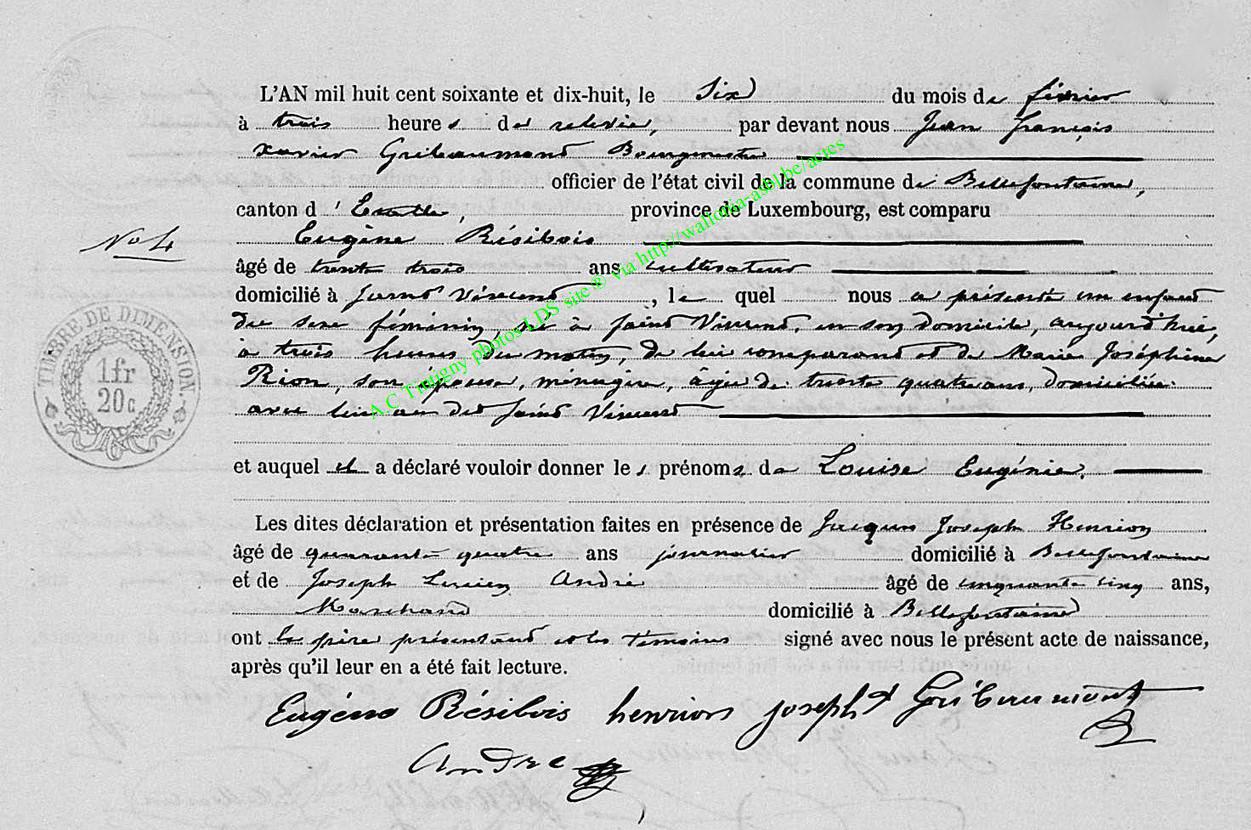 L'AN mil huit cent soixante et dix-huit, le Six du mois de février
à trois heures de relevée, par devant nous Jean françois
xavier Gribaumont Bourgmestre
officier de l'état civil de la commune de Bellefontaine,
canton d' Etalle, province de Luxembourg, est comparu
No 4
Eugène Résibois
âgé de trente trois ans cultivateur
domicilié à Saint Vincent, le quel nous a présenté un enfant
du sexe féminin, né à Saint Vincent, en son domicile, aujourd'hui,
à trois heures du matin, de lui comparant et de Marie Joséphine
Rion, son épouse, ménagère, âgée de trente quatre ans, domiciliée
avec lui au dit Saint Vincent
et auquel il a déclaré vouloir donner les prénoms de Louise Eugénie.
Les dites déclaration et présentation faites en présence de Jacques Joseph Henrion
âgé de quarante quatre ans journalier domicilié à Bellefontaine
et de Joseph Lucien André âgé de cinquante cinq ans,
Marchand domicilié à Bellefontaine
ont le père présentant et les témoins signé avec nous le présent acte de naissance,
après qu'il leur en a été fait lecture.
Eugène Résibois henrion joseph Gribaumont
André
TIMBRE DE DIMENSION.
1fr
20c
A.C Tintigny photos LDS site ® via http://wallonia-asbl.be/actes